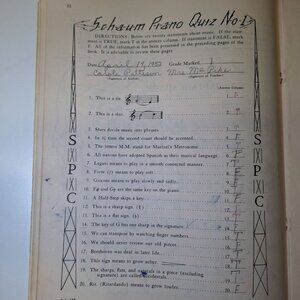 Schaum Piano Quiz No.1
DIRECTIONS: Below are twenty statements about music. If the state-
ment is TRUE, mark T in the answer column. If statement is FALSE, mark
F. All of the information has been presented in the preceding pages of the
book. It is advisable to review their pages
Date April 17, 1952 Grade Marked
Carole Pattison Mrs
(Signature of Student) (Signature of Teacher)
(Answer Column)
1. This is a tie
2. This is a slur.
3. Slurs divide music into phrases
4. In time the second count should be accented.
5. The letters M.M. stand for Maelzel's Metronome.
6. All nations have adopted Spanish as their musical language
7. Legato means to play in a smooth connected manner.
8. Forte (f) means to play soft.
9. Giocoso means to play slowly and sadly.
10. F# and Gb are the same key on the piano.
11. A Half-Step skips a key.
12. This is a sharp sign. (#)
13. This is a flat sign. (b)
14. The key of G has one sharp in the signature
15. We can transpose by watching finger numbers
16. We should never review our old pieces.
17. Beethoven was deaf in later life.
18. This sign means to grow softer
19. The sharps, flats, and naturals in a piece (excluding
signature) are called accidentals.
20. Rit. (Ritardando) means to grow louder.
S P C
S P C